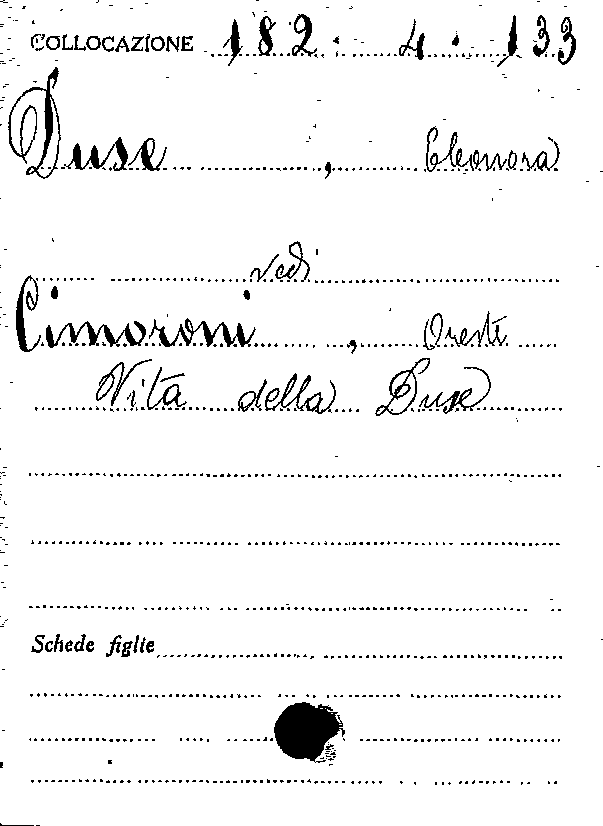 COLLOCAZIONE 182. 4. 133
Duse, Eleonora
vedi
Cimoroni, Oreste
Vita della Duse
Schede figlie